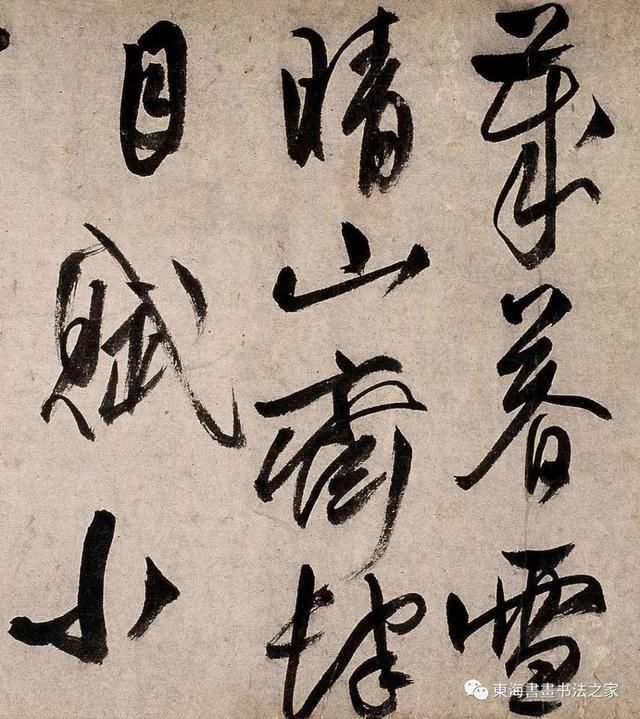 歲暮雪
晴山齋肆
目賦小
東海書畫书法之家